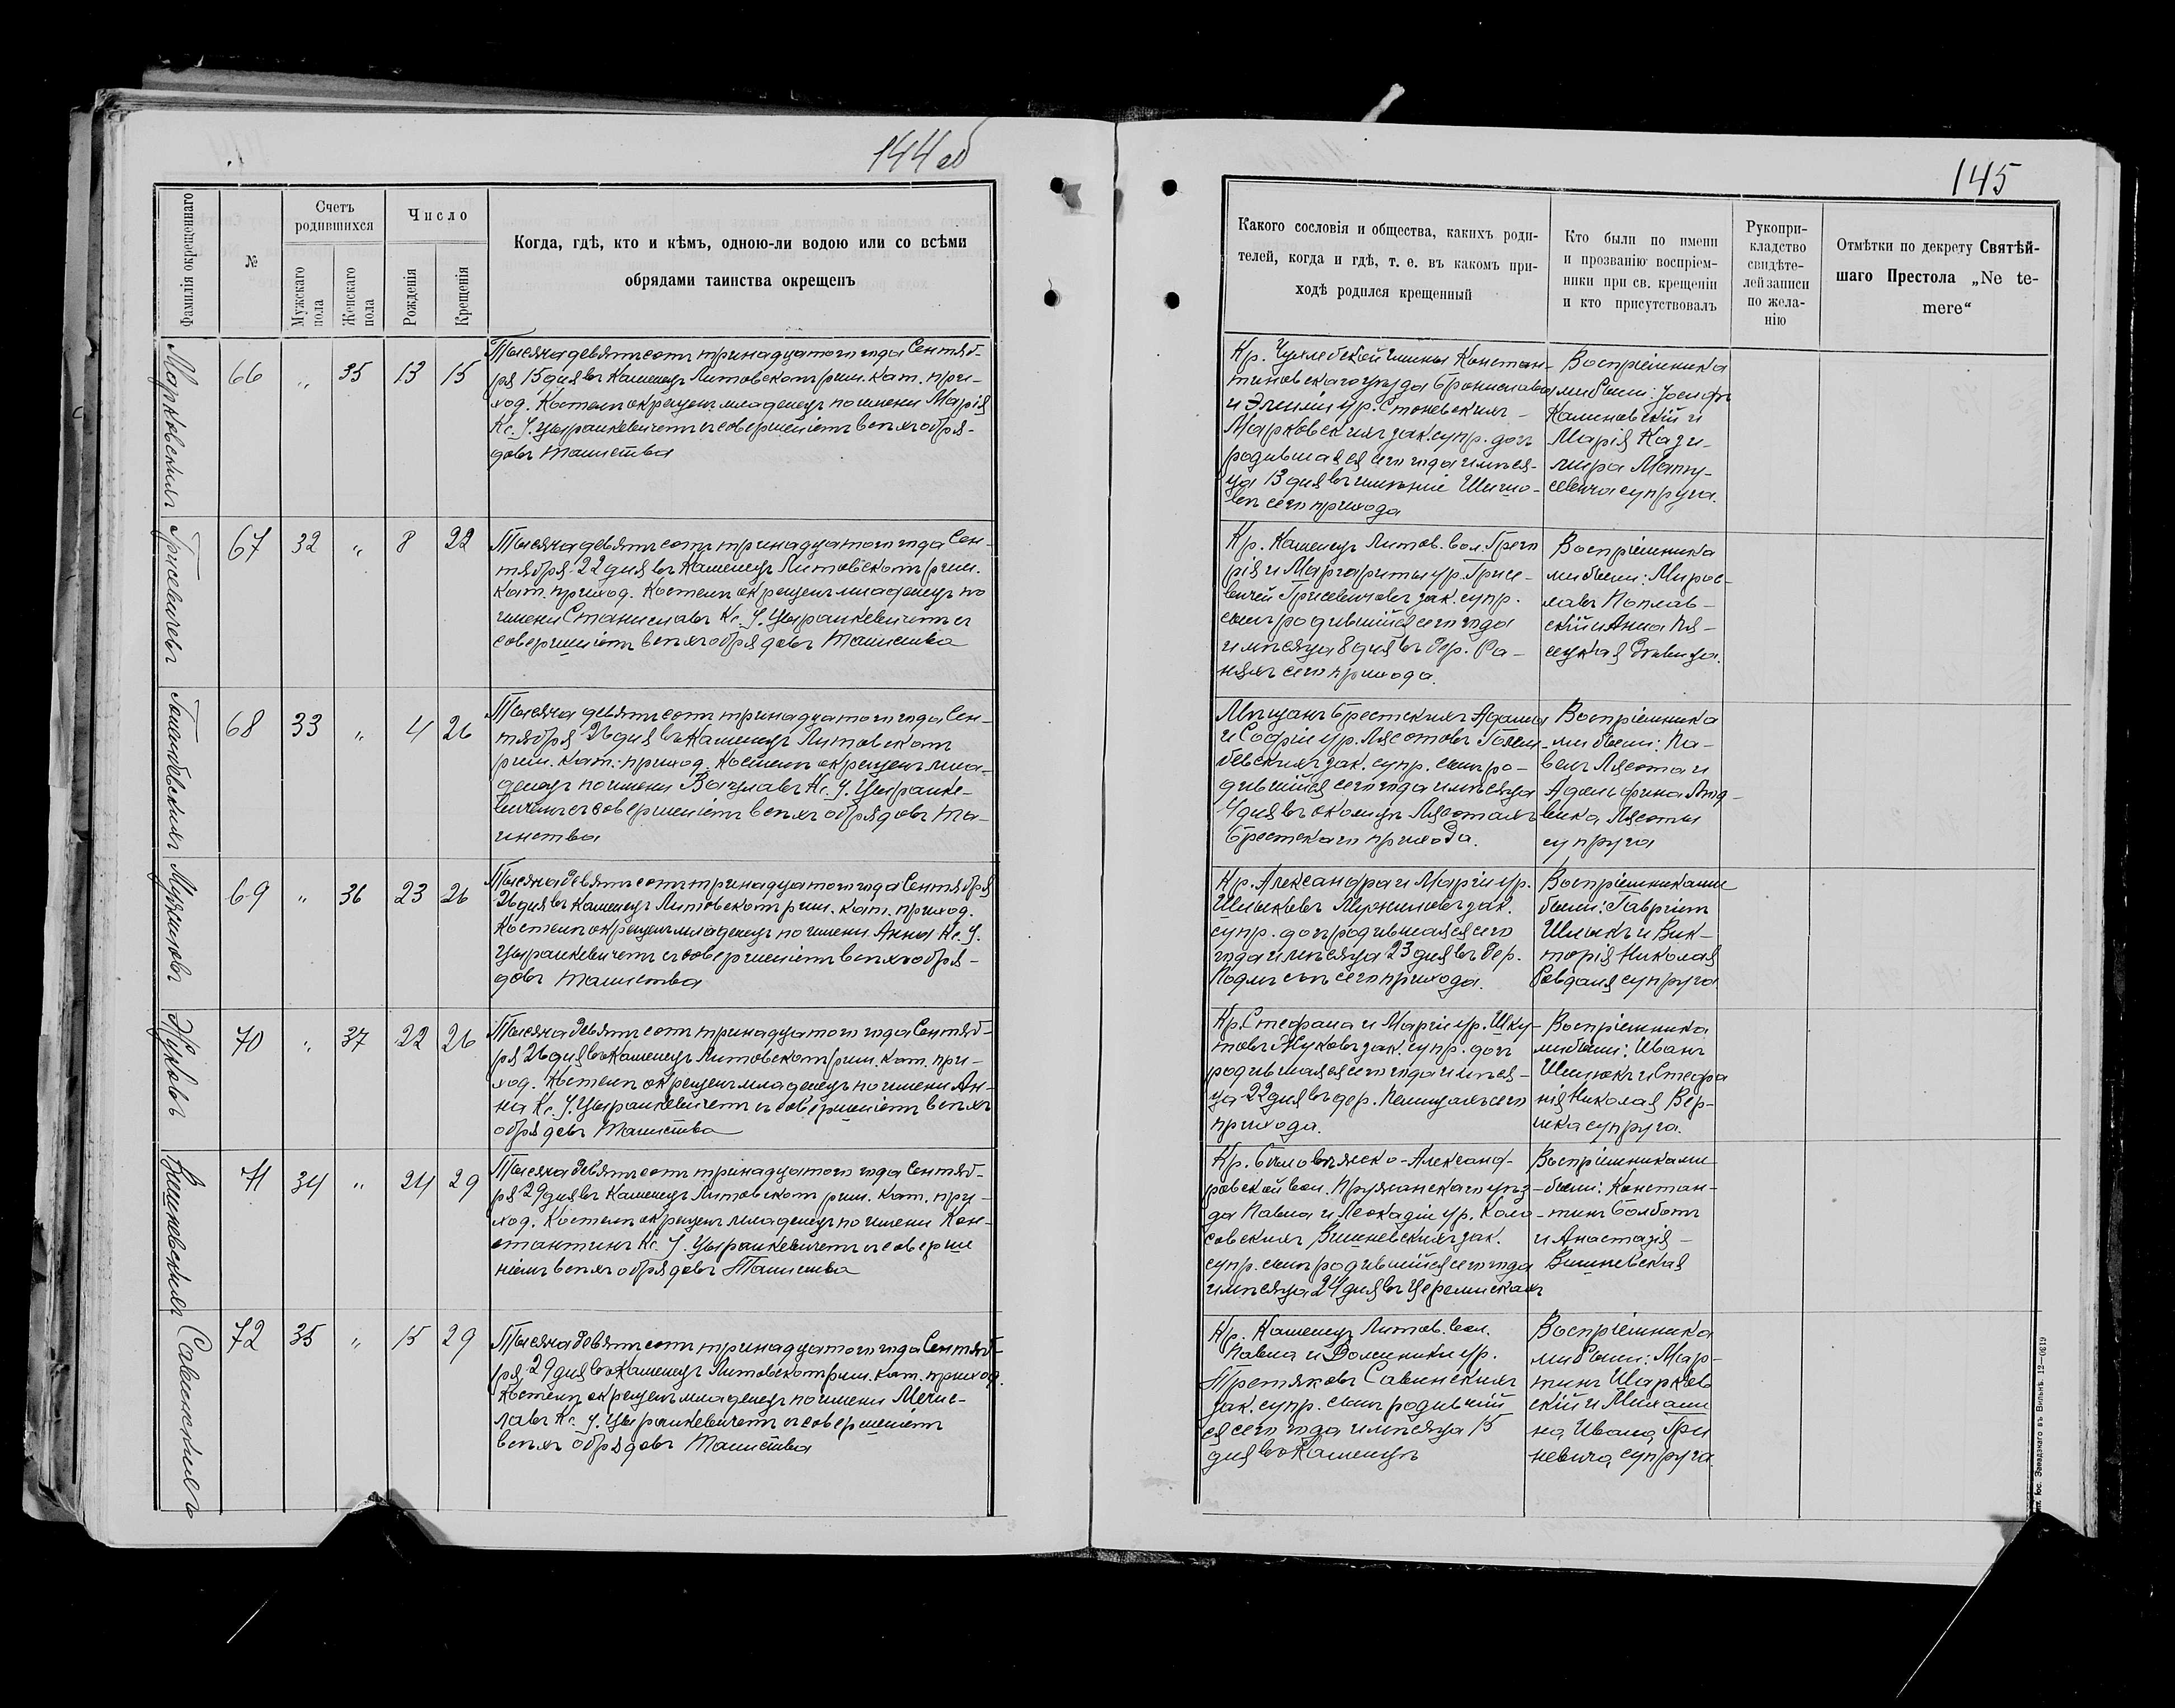 144 об
Фамилія окрещеннаго
№
Счетъ
родившихся
Мужскаго
пола
Женскаго
пола
Число
Рожденія
Крещенія
Когда, гдѣ, кто и кѣмъ, одною-ли водою или со всѣми
обрядами таинства окрещенъ
Марковскихъ
66 „ 35 13 15
Тысяча девятьсотъ тринадцатаго года Сентяб-
ря 15 дня въ Каменецъ Литовскомъ рим. кат. при-
ход. Костелѣ окрещенъ младенецъ по имени Марія
Кс. У. Цыранкевичемъ съ совершеніемъ всѣхъ обря-
довъ таинства
Грисевичевъ
67 32 „ 8 22
Тысяча девятьсотъ тринадцатаго года Сен-
тября 22 дня въ Каменецъ Литовскомъ рим.
кат. приход. Костелѣ окрещенъ младенецъ по
имени Станиславъ Кс. У. Цыранкевичемъ съ
совершеніемъ всѣхъ обрядовъ таинства
Голембевскихъ
68 33 „ 4 26
Тысяча девятьсотъ тринадцатаго года Сен-
тября 26 дня въ Каменецъ Литовскомъ
рим. кат. приход. Костелѣ окрещенъ мла-
денецъ по имени Вацлавъ Кс. У. Цыранке-
вичемъ съ совершеніемъ всѣхъ обрядовъ та-
инства
69 „ 36 23 26
Тысяча девятьсотъ тринадцатаго года Сентября
26 дня въ Каменецъ Литовскомъ рим. кат. приход.
Костелѣ окрещенъ младенецъ по имени Анна Кс. У.
Цыранкевичемъ съ совершеніемъ всѣхъ обря-
довъ таинства
Жуковъ
70 „ 37 22 26
Тысяча девятьсотъ тринадцатаго года Сентяб-
ря 26 дня въ Каменецъ Литовскомъ рим. кат. при-
ход. Костелѣ окрещенъ младенецъ по имени Ан-
на Кс. У. Цыранкевичемъ съ совершеніемъ всѣхъ
обрядовъ таинства
Вишневскихъ
71 34 „ 24 29
Тысяча девятьсотъ тринадцатаго года Сентяб-
ря 29 дня въ Каменецъ Литовскомъ рим. кат. при-
ход. Костелѣ окрещенъ младенецъ по имени Кон-
стантинъ Кс. У. Цыранкевичемъ съ соверше
ніемъ всѣхъ обрядовъ таинства
Савинскихъ
72 35 „ 15 29
Тысяча девятьсотъ тринадцатаго года Сентяб-
ря 29 дня въ Каменецъ Литовскомъ рим. кат. приход.
Костелѣ окрещенъ младенецъ по имени Мечис-
лавъ Кс. У. Цыранкевичемъ съ совершеніемъ
всѣхъ обрядовъ таинства
145
Какого сословія и общества, какихъ роди-
телей, когда и гдѣ, т. е. въ какомъ при-
ходѣ родился крещенный
Кто были по имени
и прозванію воспріем-
ники при св. крещеніи
и кто присутствовалъ
Рукопри-
кладство
свидѣте-
лей записи
по жела-
нію
Отмѣтки по декрету Святѣй-
шаго Престола „Ne te-
mere“
Кр. гмины Констан-
тиновскаго уѣзда Бронислава
и Эмиліи ур. Стоневскихъ
Марковскихъ зак. супр. дочь
родившаяся сего года и мѣся-
ца 13 дня въ имѣніе
сего прихода
Воспріемника
ми были: Іосифъ
Калиновскій и
Марія Кази-
мира Мату-
севича супруга.
Кр. Каменецъ Литов. вол. Григо
рія и Маргариты ур. Грисе-
вичей Грисевичевъ зак. супр.
сынъ родившійся сего года
и мѣсяца 8 дня въ дер. Ра-
сего прихода.
Воспріемника
ми были: Мирос-
лавъ Поплав-
скій и Анна Пя-
сецкая дѣвица.
Мѣщанъ Брестскихъ Адама
и Софіи ур. Лясотовъ Голем-
бевскихъ зак. супр. сынъ ро-
дившійся сего года и мѣсяца
4 дня въ околицѣ Лясотахъ
Брестскаго прихода.
Воспріемника
ми были: Па-
велъ Лясота и
Адольфина Люд-
вика Лясоты
супруга
Кр. Александра и Маріи ур.
зак.
супр. дочь родившаяся сего
года и мѣсяца 23 дня въ дер.
сего прихода.
Воспріемниками
были: Гавріилъ
и Вик-
торія Николая
супруга
Кр. Стефана и Маріи ур. Шку-
товъ Жуковъ зак. супр. дочь
родившаяся сего года и мѣся-
ца 22 дня въ дер. Пелищахъ сего
прихода.
Воспріемника
ми были: Иванъ
и Стефа
нія Николая
супруга.
Кр. Бѣловѣжско-Александ-
ровской вол. Пружанскаго уѣз-
да Павла и Леокадіи ур. Коло-
совскихъ Вишневскихъ зак.
супр. сынъ родившійся сего года
и мѣсяца 24 дня въ
Воспріемниками
были: Констан-
тинъ Болботъ
и Анастазія
Вишневская
Кр. Каменецъ Литов. вол.
Павла и Доминики ур.
Третяковъ Савинскихъ
зак. супр. сынъ родившій
ся сего года и мѣсяца 15
дня въ Каменцѣ
Воспріемника
ми были: Мар-
тинъ Шарков
скій и Михали
на Ивана Гри
невича супруга.
Іос. Завадзкаго въ Вильнѣ. 12—0619